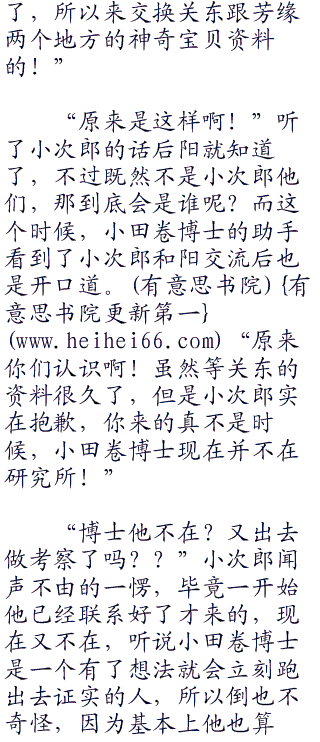 了，所以来交换关东跟芳缘
两个地方的神奇宝贝资料
的！”
“原来是这样啊！”听
了小次郎的话后阳就知道
了，不过既然不是小次郎他
们，那到底会是谁呢？而这
个时候，小田卷博士的助手
看到了小次郎和阳交流后也
是开口道。(有意思书院) {有
意思书院更新第一}
(www.heihei66.com)“原来
你们认识啊！虽然等关东的
资料很久了，但是小次郎实
在抱歉，你来的真不是时
候，小田卷博士现在并不在
研究所！”
“博士他不在？又出去
做考察了吗？？”小次郎闻
声不由的一愣，毕竟一开始
他已经联系好了才来的，现
在又不在，听说小田卷博士
是一个有了想法就会立刻跑
出去证实的人，所以倒也不
奇怪，因为基本上他也算